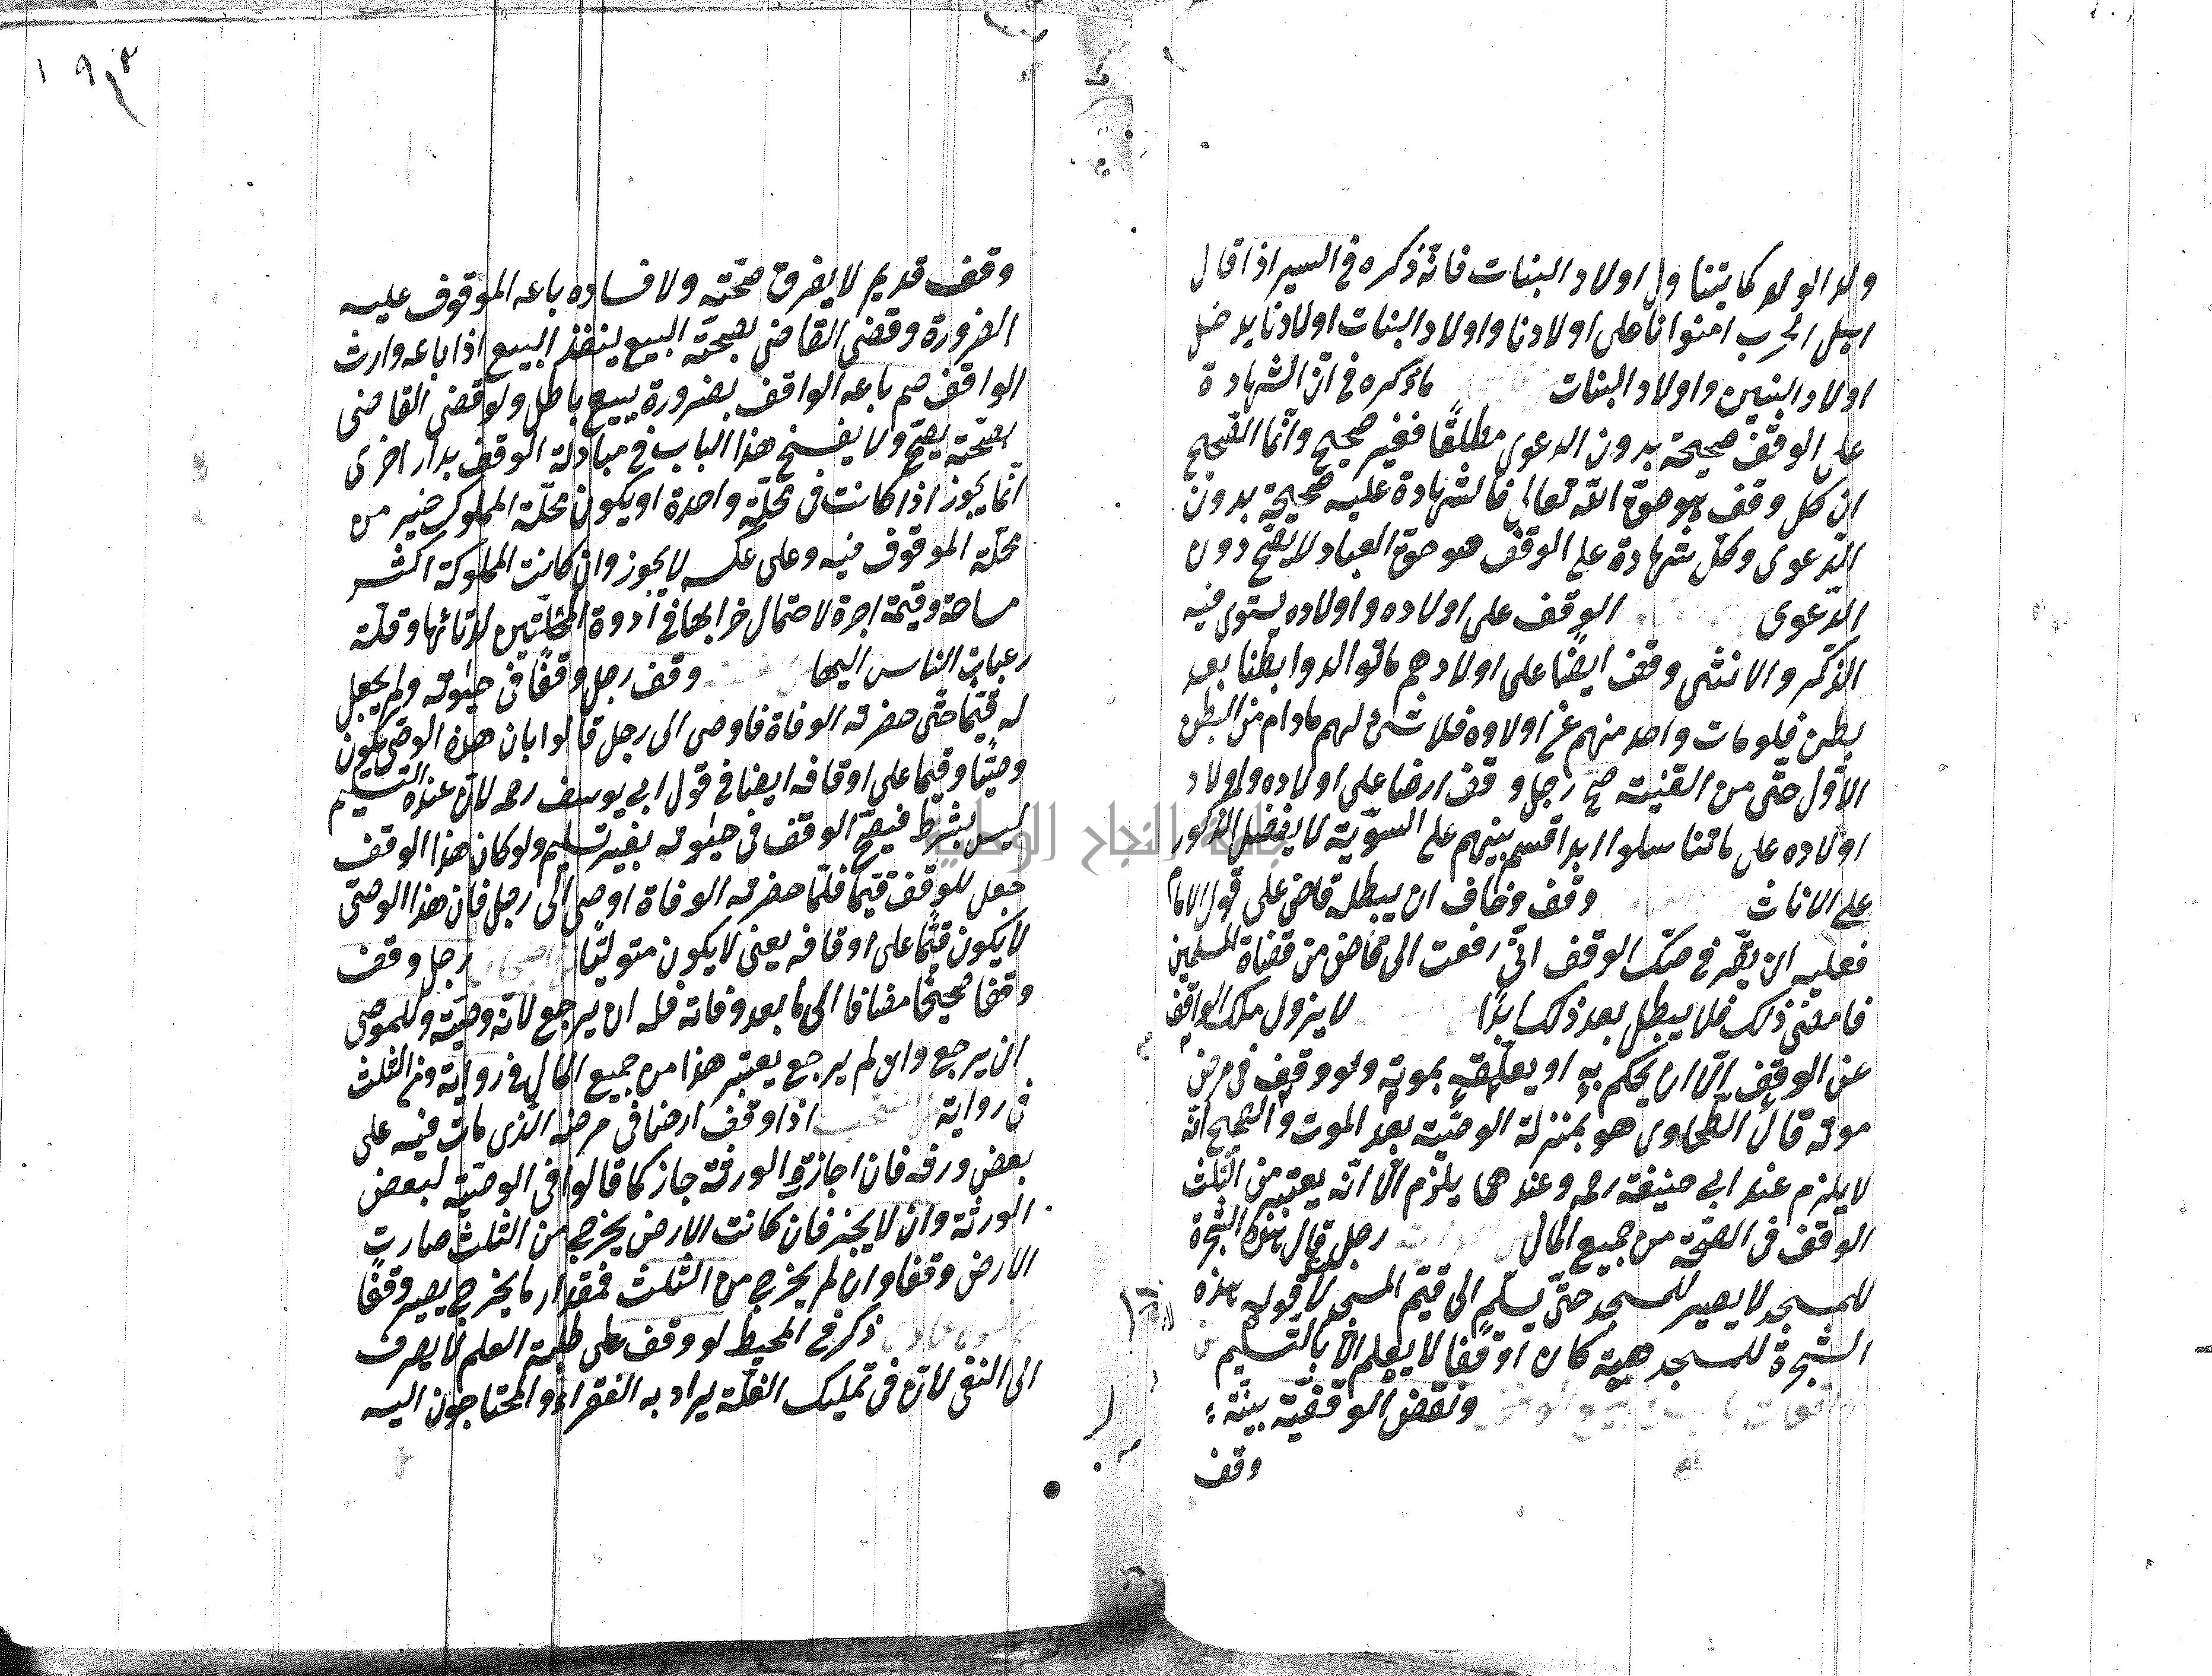 ولد الولد كما يتناول اولاد البنات فانه ذكره في السير اذا قال
اهل الحرب امنوانا على اولادنا واولاد البنات اولادنا يدخل
اولاد البنين واولاد البنات ما ذكره في ان الشهادة
على الوقف صحيحة بدون الدعوى مطلقًا فغير صحيح وانما الصحيح
ان كل وقف هو حق الله تعالى فالشهادة عليه صحيحة بدون
الدعوى وكل شهادة على الوقف هو حق العباد لا يصح دون
الدعوى الوقف على اولاده واولاده يستوى فيه
الذكر والانثى وقف ايضًا على اولادهم ما توالدوا بطنا بعد
بطن فلو مات واحد منهم عن اولاده فلا شئ لهم مادام من البطن
الاول حتى من القنية صح رجل وقف ارضا على اولاده واولاد
اولاده على ما تناسلوا ابدا قسم بينهم على السوية لا يفضل الذكور
على الاناث وقف وخاف ان يبطله قاض على قول الامام
فعليه ان يقر في صك الوقف انى رفعت الى قاض من قضاة المسلمين
فامضى ذلك فلا يبطل بعد ذلك ابدًا لا يزول ملك الواقف
عن الوقف الا ان يحكم به او يعلقه بموته ولو وقف في مرض
موته قال الطحاوى هو بمنزلة الوصية بعد الموت والصحيح انه
لا يلزم عند ابي حنيفة رحمه وعندهما يلزم الا انه يعتبر من الثلث
الوقف في الصحة من جميع المال رجل قال هذه الشجرة
للمسجد لا يصير للمسجد حتى يسلم الى قيم المسجد لا قوله هذه
الشجرة للمسجد هبة كان او وقفا لا يعلم الا بالتسليم
ونقض الوقفية بينة
وقف
١٩٣
وقف قديم لا يعرف صحته ولا فساده باعه الموقوف عليه
الضرورة وقضى القاضى بصحة البيع ينفذ البيع اذا باعه وارث
الواقف صم باعه الواقف بضرورة بيع باطل ولو قضى القاضى
بصحته يصح ولا يفسخ هذا الباب في مبادلة الوقف بدار اخرى
انما يجوز اذا كانت في محلة واحدة او يكون محلة المملوك خير من
محلة الموقوف فيه وعلى عكسه لا يجوز وان كانت المملوكة اكثر
مساحة وقيمة اجرة لاحتمال خرابها في ادون المحلتين لدنائتها وقلة
رغبات الناس اليها وقف رجل وقفًا في حيوته ولم يجعل
له قيما حتى حضرته الوفاة فاوصى الى رجل قالوا بان هذا الوصى يكون
وصيًا وقيما على اوقافه ايضا في قول ابي يوسف رحمه لان عنده التسليم
ليس بشرط فيصح الوقف في حيوته بغير تسليم ولو كان هذا الوقف
جعل للوقف قيما فلما حضرته الوفاة اوصى الى رجل فان هذا الوصى
لا يكون قيمًا على اوقافه يعنى لا يكون متوليًا رجل وقف
وقفا صحيحًا مضافا الى ما بعد وفاته فله ان يرجع لانه وصية وللموصى
ان يرجع وان لم يرجع يعتبر هذا من جميع المال في رواية ومن الثلث
في رواية اذا وقف ارضا في مرضه الذى مات فيه على
بعض ورثه فان اجازه الورثة جاز كما قالوا في الوصية لبعض
الورثة وان لا يجيز فان كانت الارض يخرج من الثلث صارت
الارض وقفا وان لم يخرج من الثلث فمقدار ما يخرج يصير وقفًا
ذكر في المحيط لو وقف على طلبة العلم لا يصرف
الى الغنى لان في تمليك الغلة يراد به الفقراء والمحتاجون اليه
جامعة النجاح الوطنية